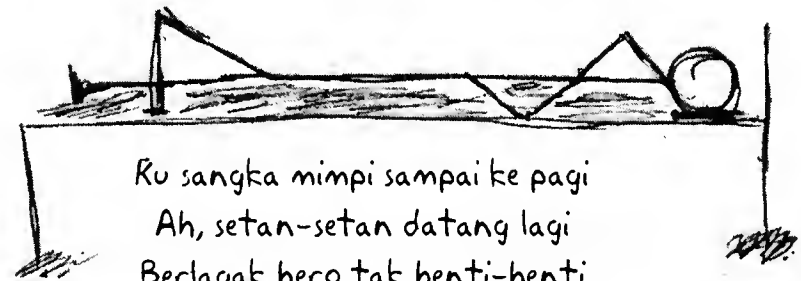 Ku sangka mimpi sampai ke pagi
Ah, setan-setan datang lagi
Berlagak hero tak henti-henti